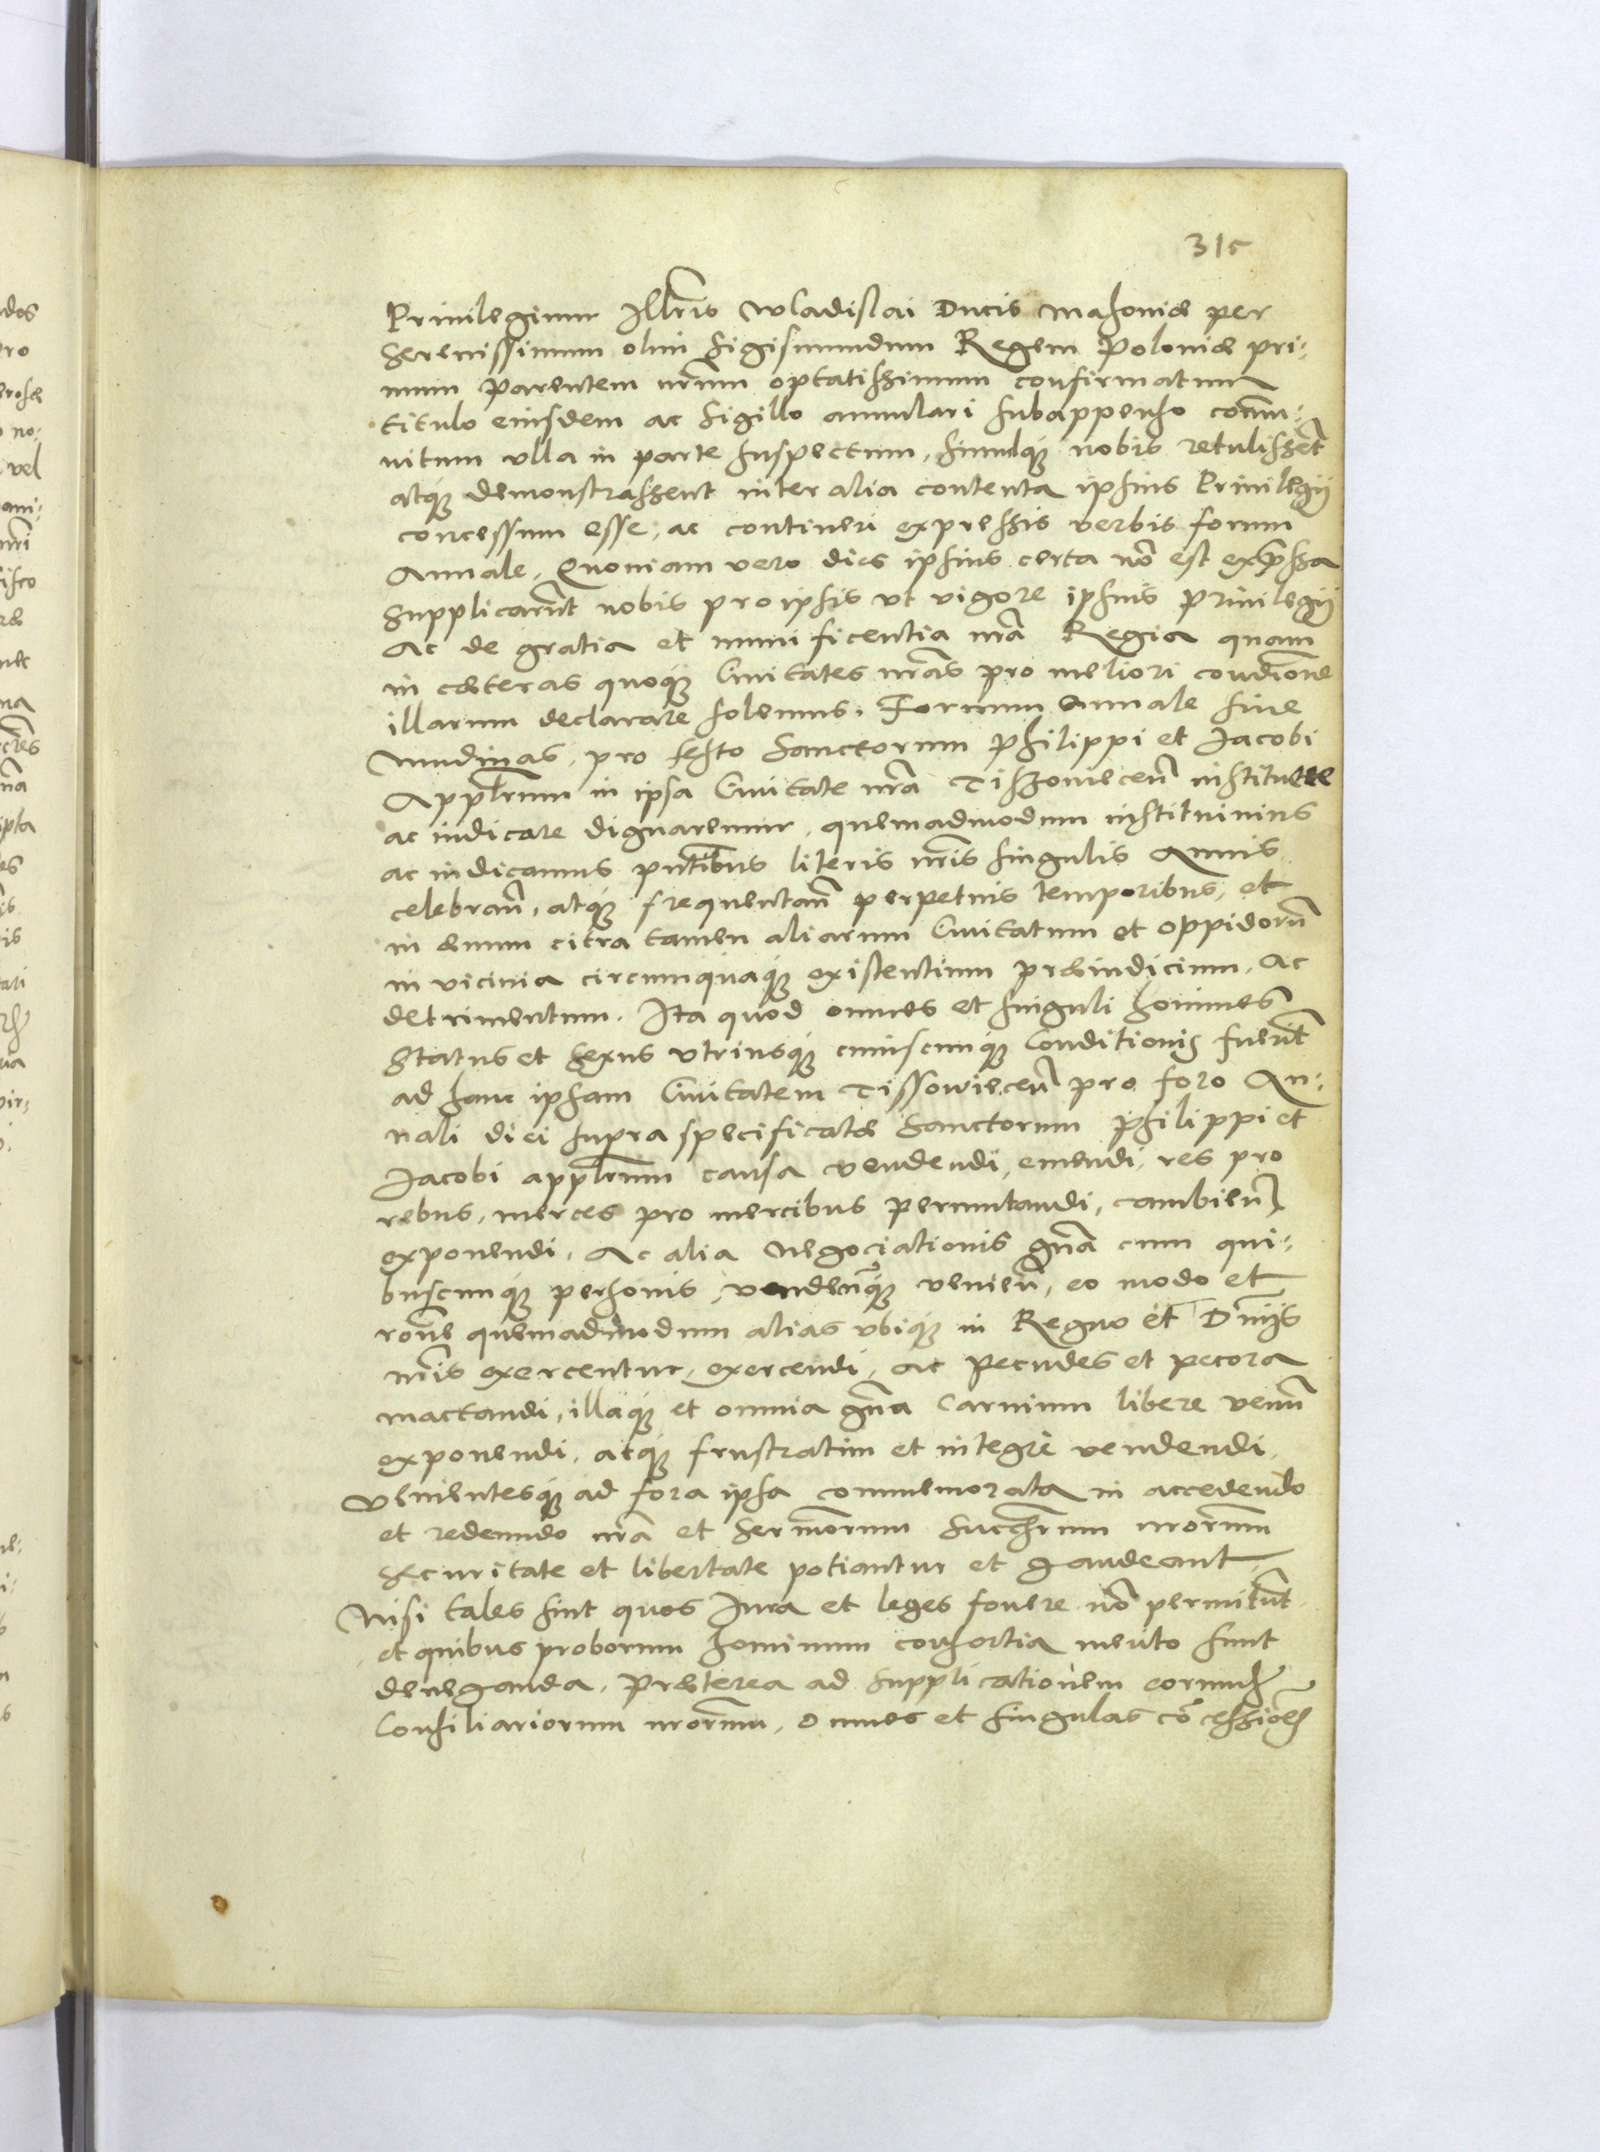 315
Priuilegium Illris Wladislai Ducis Masoniæ per
Serenissimum olim Sigismundum Regem Poloniæ pri-
mum parentem nrum optatissimum confirmatum
titulo eiusdem ac sigillo annulari subappenso commu-
nitum vlla in parte suspectum, simulq; nobis retulissent
atq; demonstrassent inter alia contenta ipsius Priuilegij
concessum esse, ac contineri expressis verbis forum
Annale, Quoniam vero dies ipsius certa nō est exprssa
Supplicarūt nobis pro ipsis vt vigore ipsius priuilegij
Ac de gratia et munificentia nrā Regia quam
in cæteras quoq; Ciuitates nrās pro meliori condicione
illarum declarare solemus. Forum Annale siue
Nundinas, pro festo Sanctorum Philippi et Jacobi
Applorum in ipsa Ciuitate nrā Tiszouiecen̄ instituere
ac indicare dignaremur, quemadmodum instituimus
ac indicamus pntibus literis nris singulis Annis
celebran̄, atq; frequentan̄ perpetuis temporibus, et
in æuum citra tamen aliarum Ciuitatum et oppidorū
in vicinia circumquaq; existentium præiudicium, Ac
detrimentum. Ita quod omnes et singuli homines
Status et Sexus vtriusq; cuiuscunq; Conditionis fuerīt
ad hanc ipsam Ciuitatem Tissowiecen̄ pro foro An-
nali diei supra specificatæ Sanctorum Philippi et
Jacobi applorum causa vendendi, emendi, res pro
rebus, merces pro mercibus permutandi, cambien̄
exponendi, Ac alia Negociationis gnā cum qui-
buscunq; personis, vndecunq; venien̄, eo modo et
rone quemadmodum alias vbiq; in Regno et Dnijs
nris exercentur, exercendi, Ac pecudes et pecora
mactandi, illaq; et omnia gnā Carnium libere venū
exponendi, atq; frustratim et integrè vendendi.
Venientesq; ad fora ipsa commemorata in accedendo
et redeundo nrā et Sermorum Succrum nrorum
Securitate et libertate potiantur et gaudeant
Nisi tales sint quos Jura et leges fouere nō permittūt
et quibus proborum hominum consortia merito sunt
deneganda. Præterea ad supplicationem eorund
Consiliariorum nrorum, omnes et singulas cōcessiones